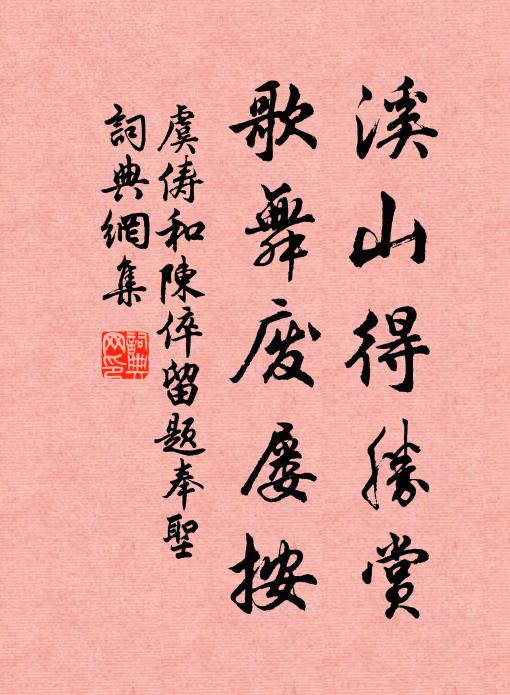 溪山得勝賞
歌舞廢屢按
虞儔和陳倅留題奉聖
詞典網集
詞典
网印